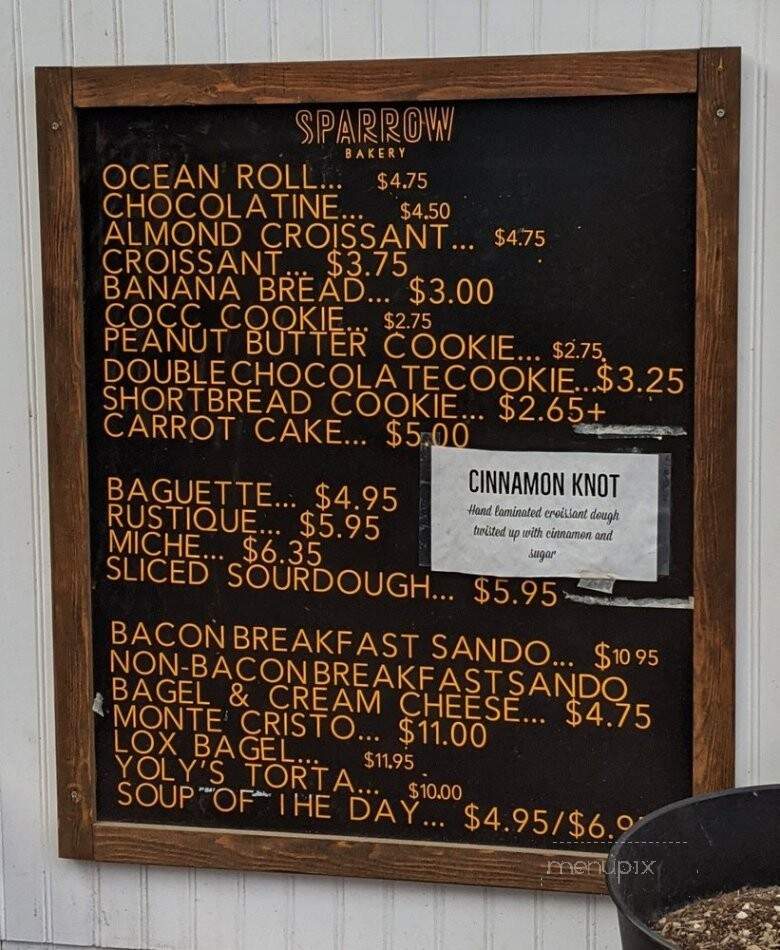 SPARROW
BAKERY
OCEAN ROLL... $4.75
CHOCOLATINE... $4.50
ALMOND CROISSANT... $4.75
CROISSANT... $3.75
BANANA BREAD... $3.00
COCC COOKIE... $2.75
PEANUT BUTTER COOKIE... $2.75
DOUBLE CHOCOLATE COOKIE...$3.25
SHORTBREAD COOKIE... $2.65+
CARROT CAKE... $5.00
CINNAMON KNOT
Hand laminated croissant dough
twisted up with cinnamon and
sugar
BAGUETTE... $4.95
RUSTIQUE... $5.95
MICHE... $6.35
SLICED SOURDOUGH... $5.95
BACON BREAKFAST SANDO... $10 95
NON-BACON BREAKFAST SANDO
BAGEL & CREAM CHEESE... $4.75
MONTE CRISTO... $11.00
LOX BAGEL... $11.95
YOLY'S TORTA... $10.00
SOUP OF THE DAY... $4.95/
menupix